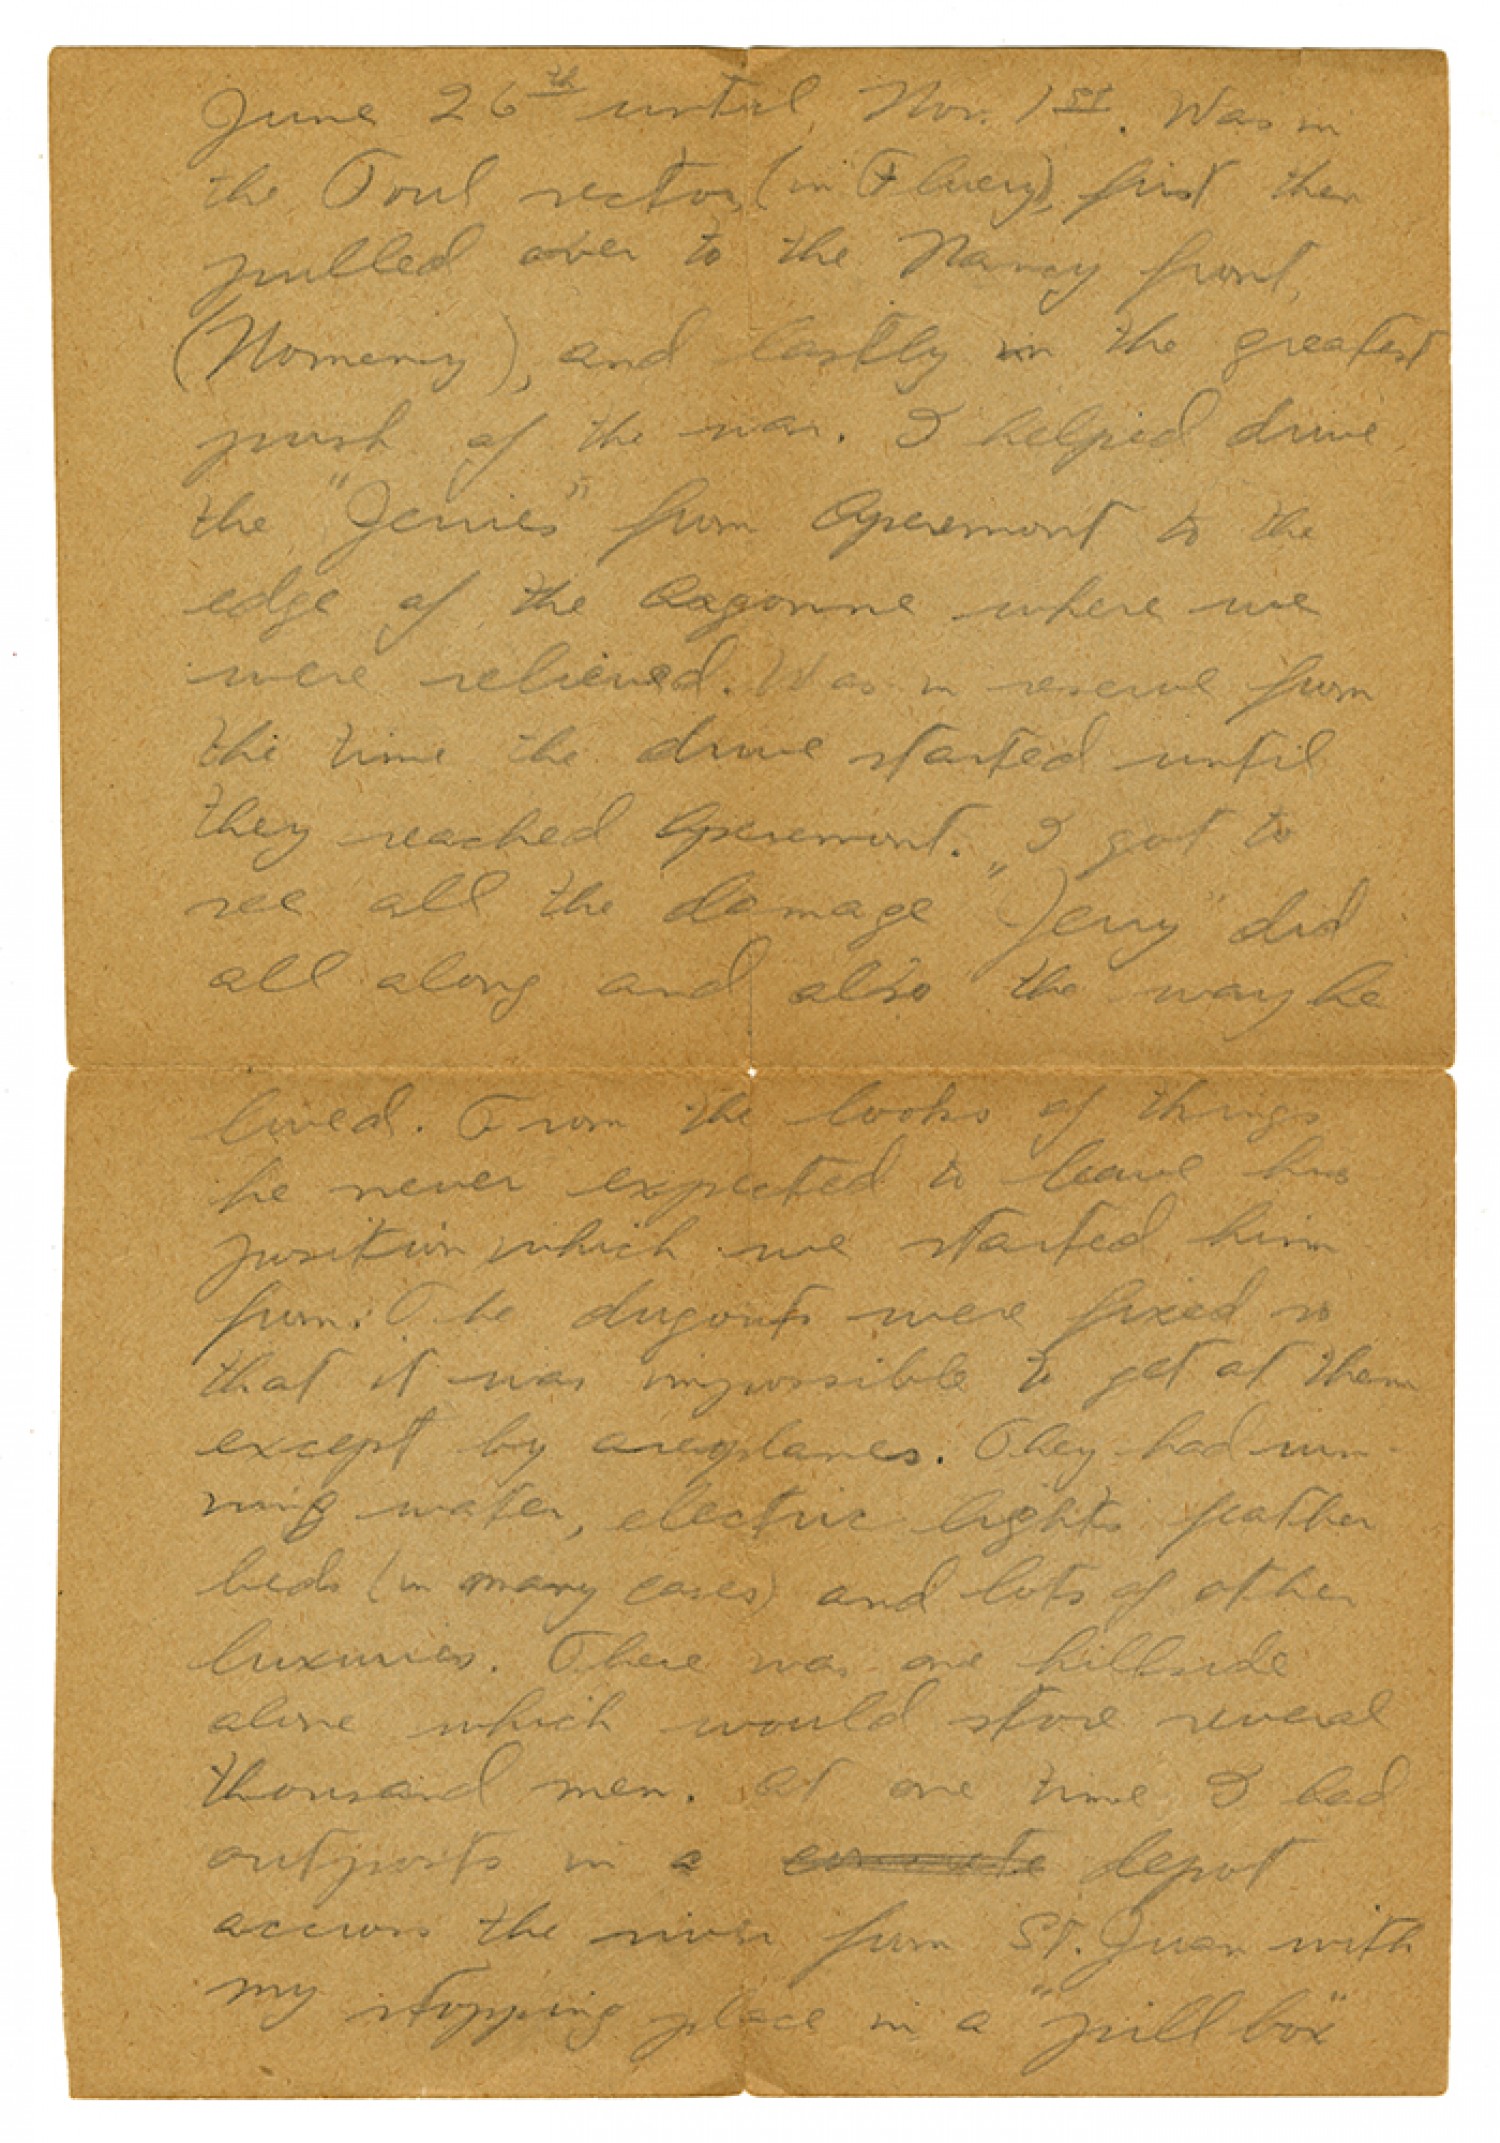 June 26th until Nov. 1st. Was in
the Toul sector, (in Fluery), first then
pulled over to the Nancy front,
(Nomeny), and lastly in the greatest
push of the war. I helped drive
the "Jerries" from Aperemont to the
edge of the Aagonne where we
were relieved. Was in reserve from
the time the drive started until
they reached Aperemont. I got to
see all the damage "Jerry" did
all along and also the way he
lived. From the looks of things
he never expected to leave his
position which we started him
from. The dugouts were fixed so
that it was impossible to get at them
except by areoplanes. They had run-
ning water, electric lights feather
beds (in many cases) and lots of other
luxuries. There was one hillside
alone which would store several
thousand men. At one time I had
outposts in a depot
accross the river from St. Juan with
my stopping place in a "pill box"